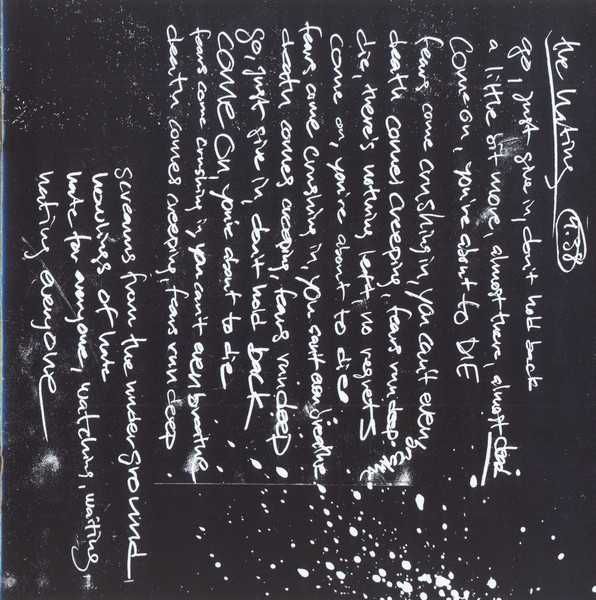 the hating 11.38
go, just give in, don't hold back
a little bit more, almost there, almost dead
come on, you're about to DIE
fears come crushing in, you can't even breathe
death comes creeping, fears run deep
die, there's nothing left, no regrets
come on, you're about to die
fears come crushing in, you can't even breathe
death comes creeping, fears run deep
go, just give in, don't hold back
COME ON, you're about to die
fears come crushing in, you can't even breathe
death comes creeping, fears run deep
screams from the underground,
howlings of hate
hate for everyone, watching, waiting
hating everyone